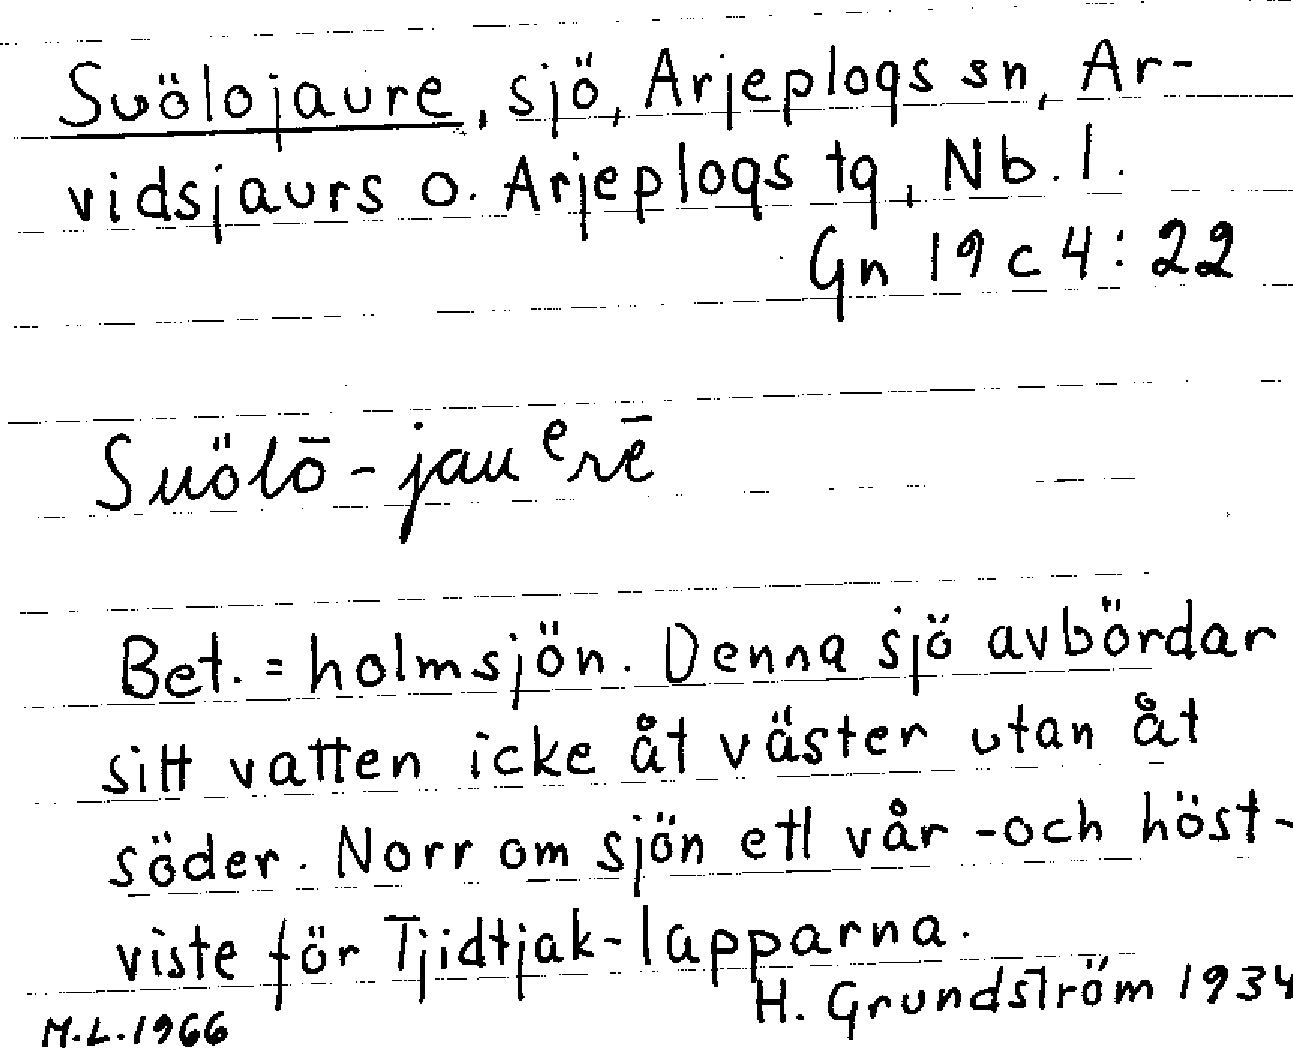 Suölojaure, sjö, Arjeplogs sn, Ar-
vidsjaurs o. Arjeplogs tg, Nb. l.
Gn 19 c 4: 22
Suölō-jauᵉrē
Bet. = holmsjön. Denna sjö avbördar
sitt vatten icke åt väster utan åt
söder. Norr om sjön ett vår -och höst-
viste för Tjidtjak-lapparna.
H. Grundström 1934
M.L.1966